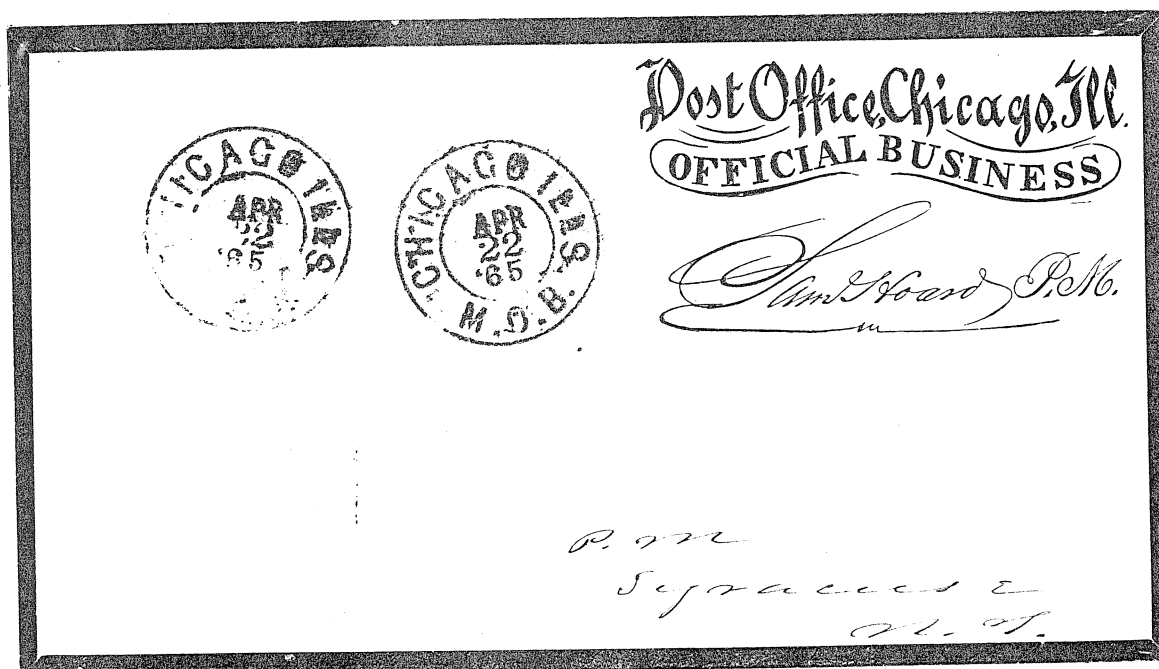 Post Office, Chicago, Ill.
OFFICIAL BUSINESS
Saml Hoard P.M.
HICAGO ILLS
APR
22
'65
CHICAGO ILLS.
APR
22
'65
M.D.B.
P. M
Syracuse
N. Y.